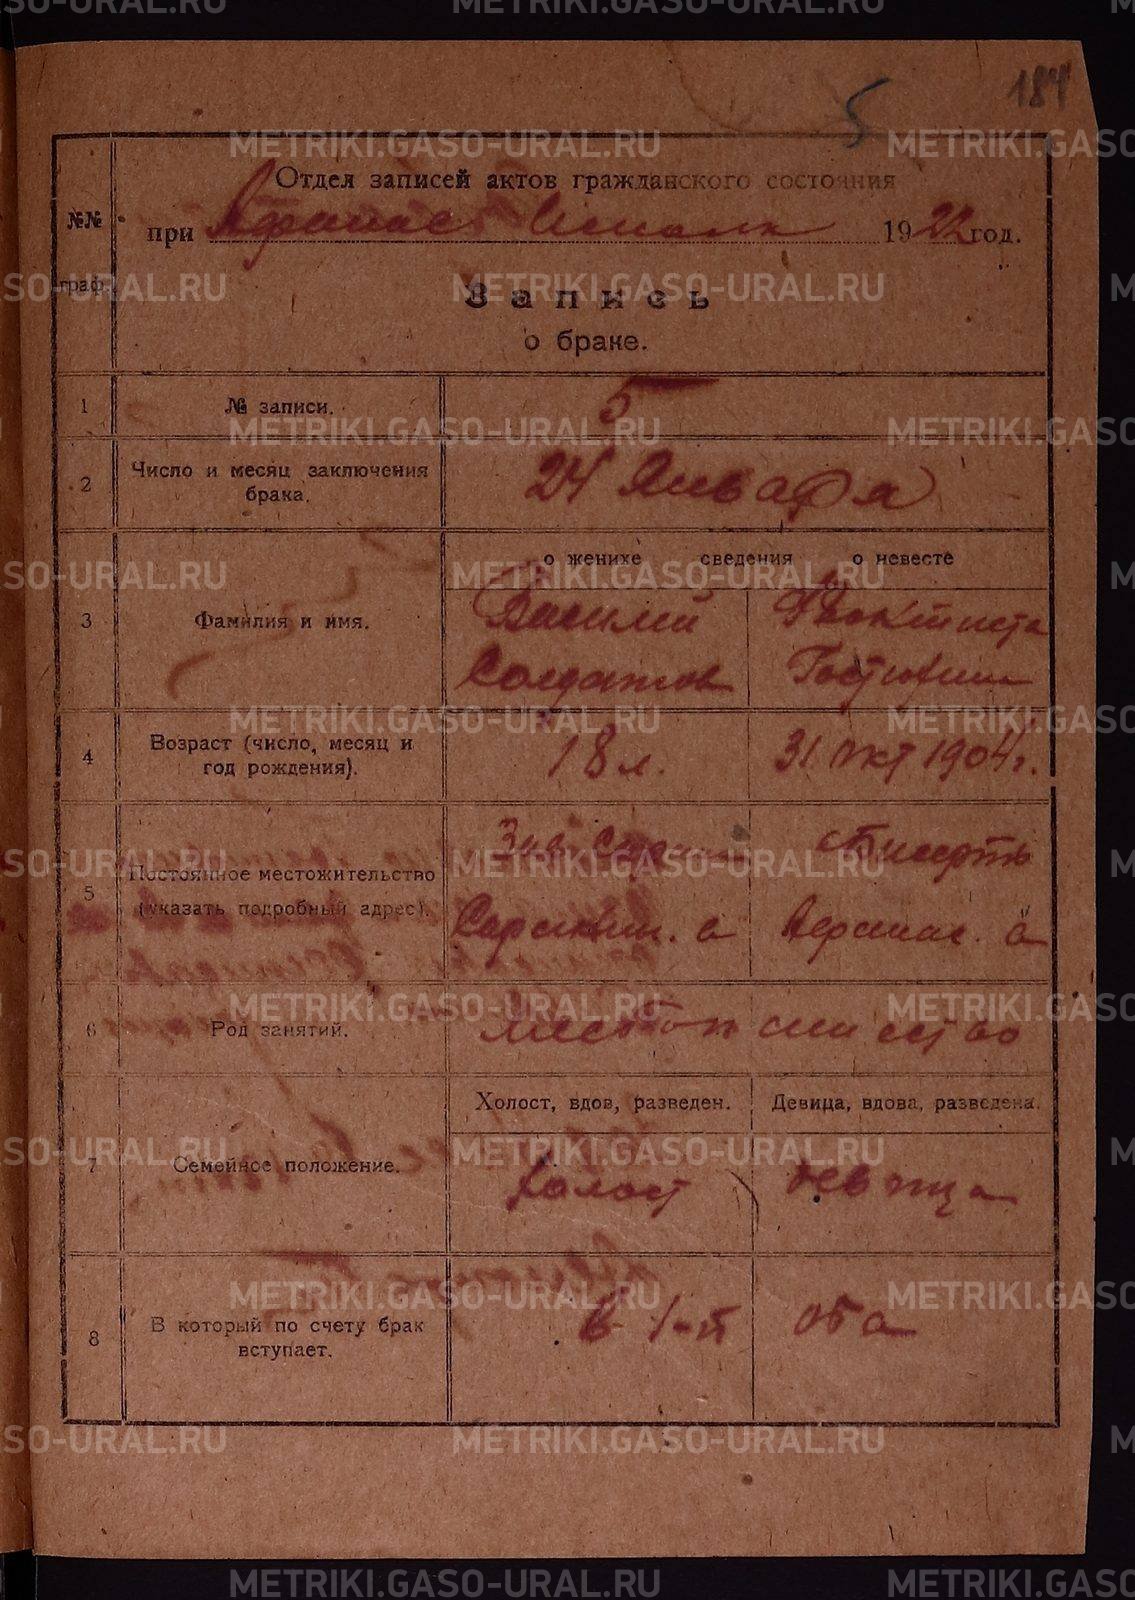 184
5
Отдел записей актов гражданского состояния
№№ граф.
при Афанас. Исполк 1922 год.
Запись
о браке.
1 № записи. 5
2 Число и месяц заключения брака. 24 Января
о женихе сведения о невесте
3 Фамилия и имя.
Василий Феоктиста
Солдатов
4 Возраст (число, месяц и год рождения). 18 л. 31 окт 1904 г.
5 Постоянное местожительство (указать подробный адрес).
6 Род занятий.
Холост, вдов, разведен. Девица, вдова, разведена.
7 Семейное положение. Холост девица
8 В который по счету брак вступает. в 1-й оба
METRIKI.GASO-URAL.RU